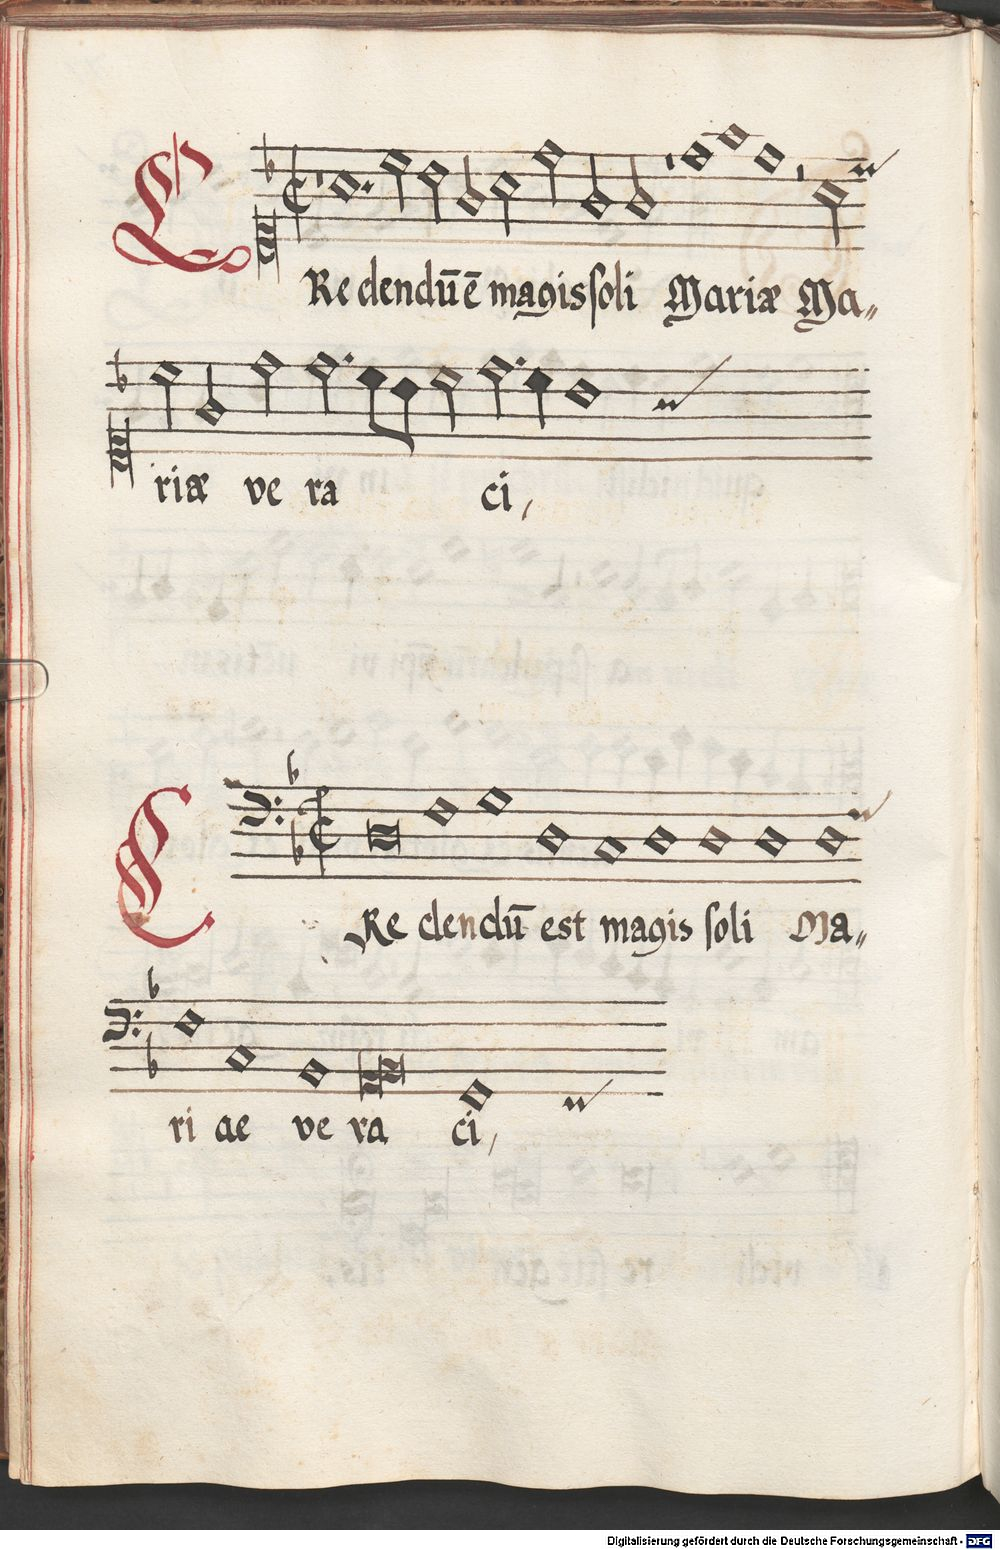 CRedendūē magis soli Mariæ Ma〃
riæ ve ra ci,
CRe dendū est magis soli Ma〃
ri ae ve ra ci,
Digitalisierung gefördert durch die Deutsche Forschungsgemeinschaft - DFG